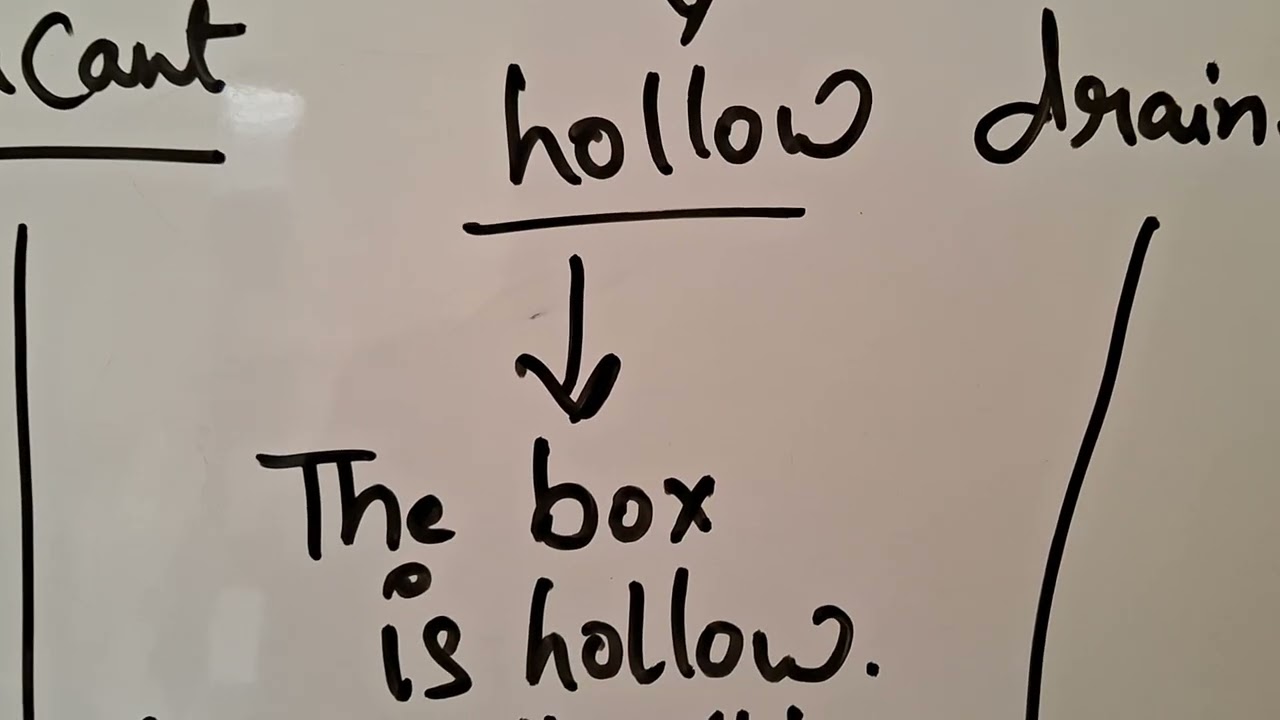 cant hollow drain
The box
is hollow.